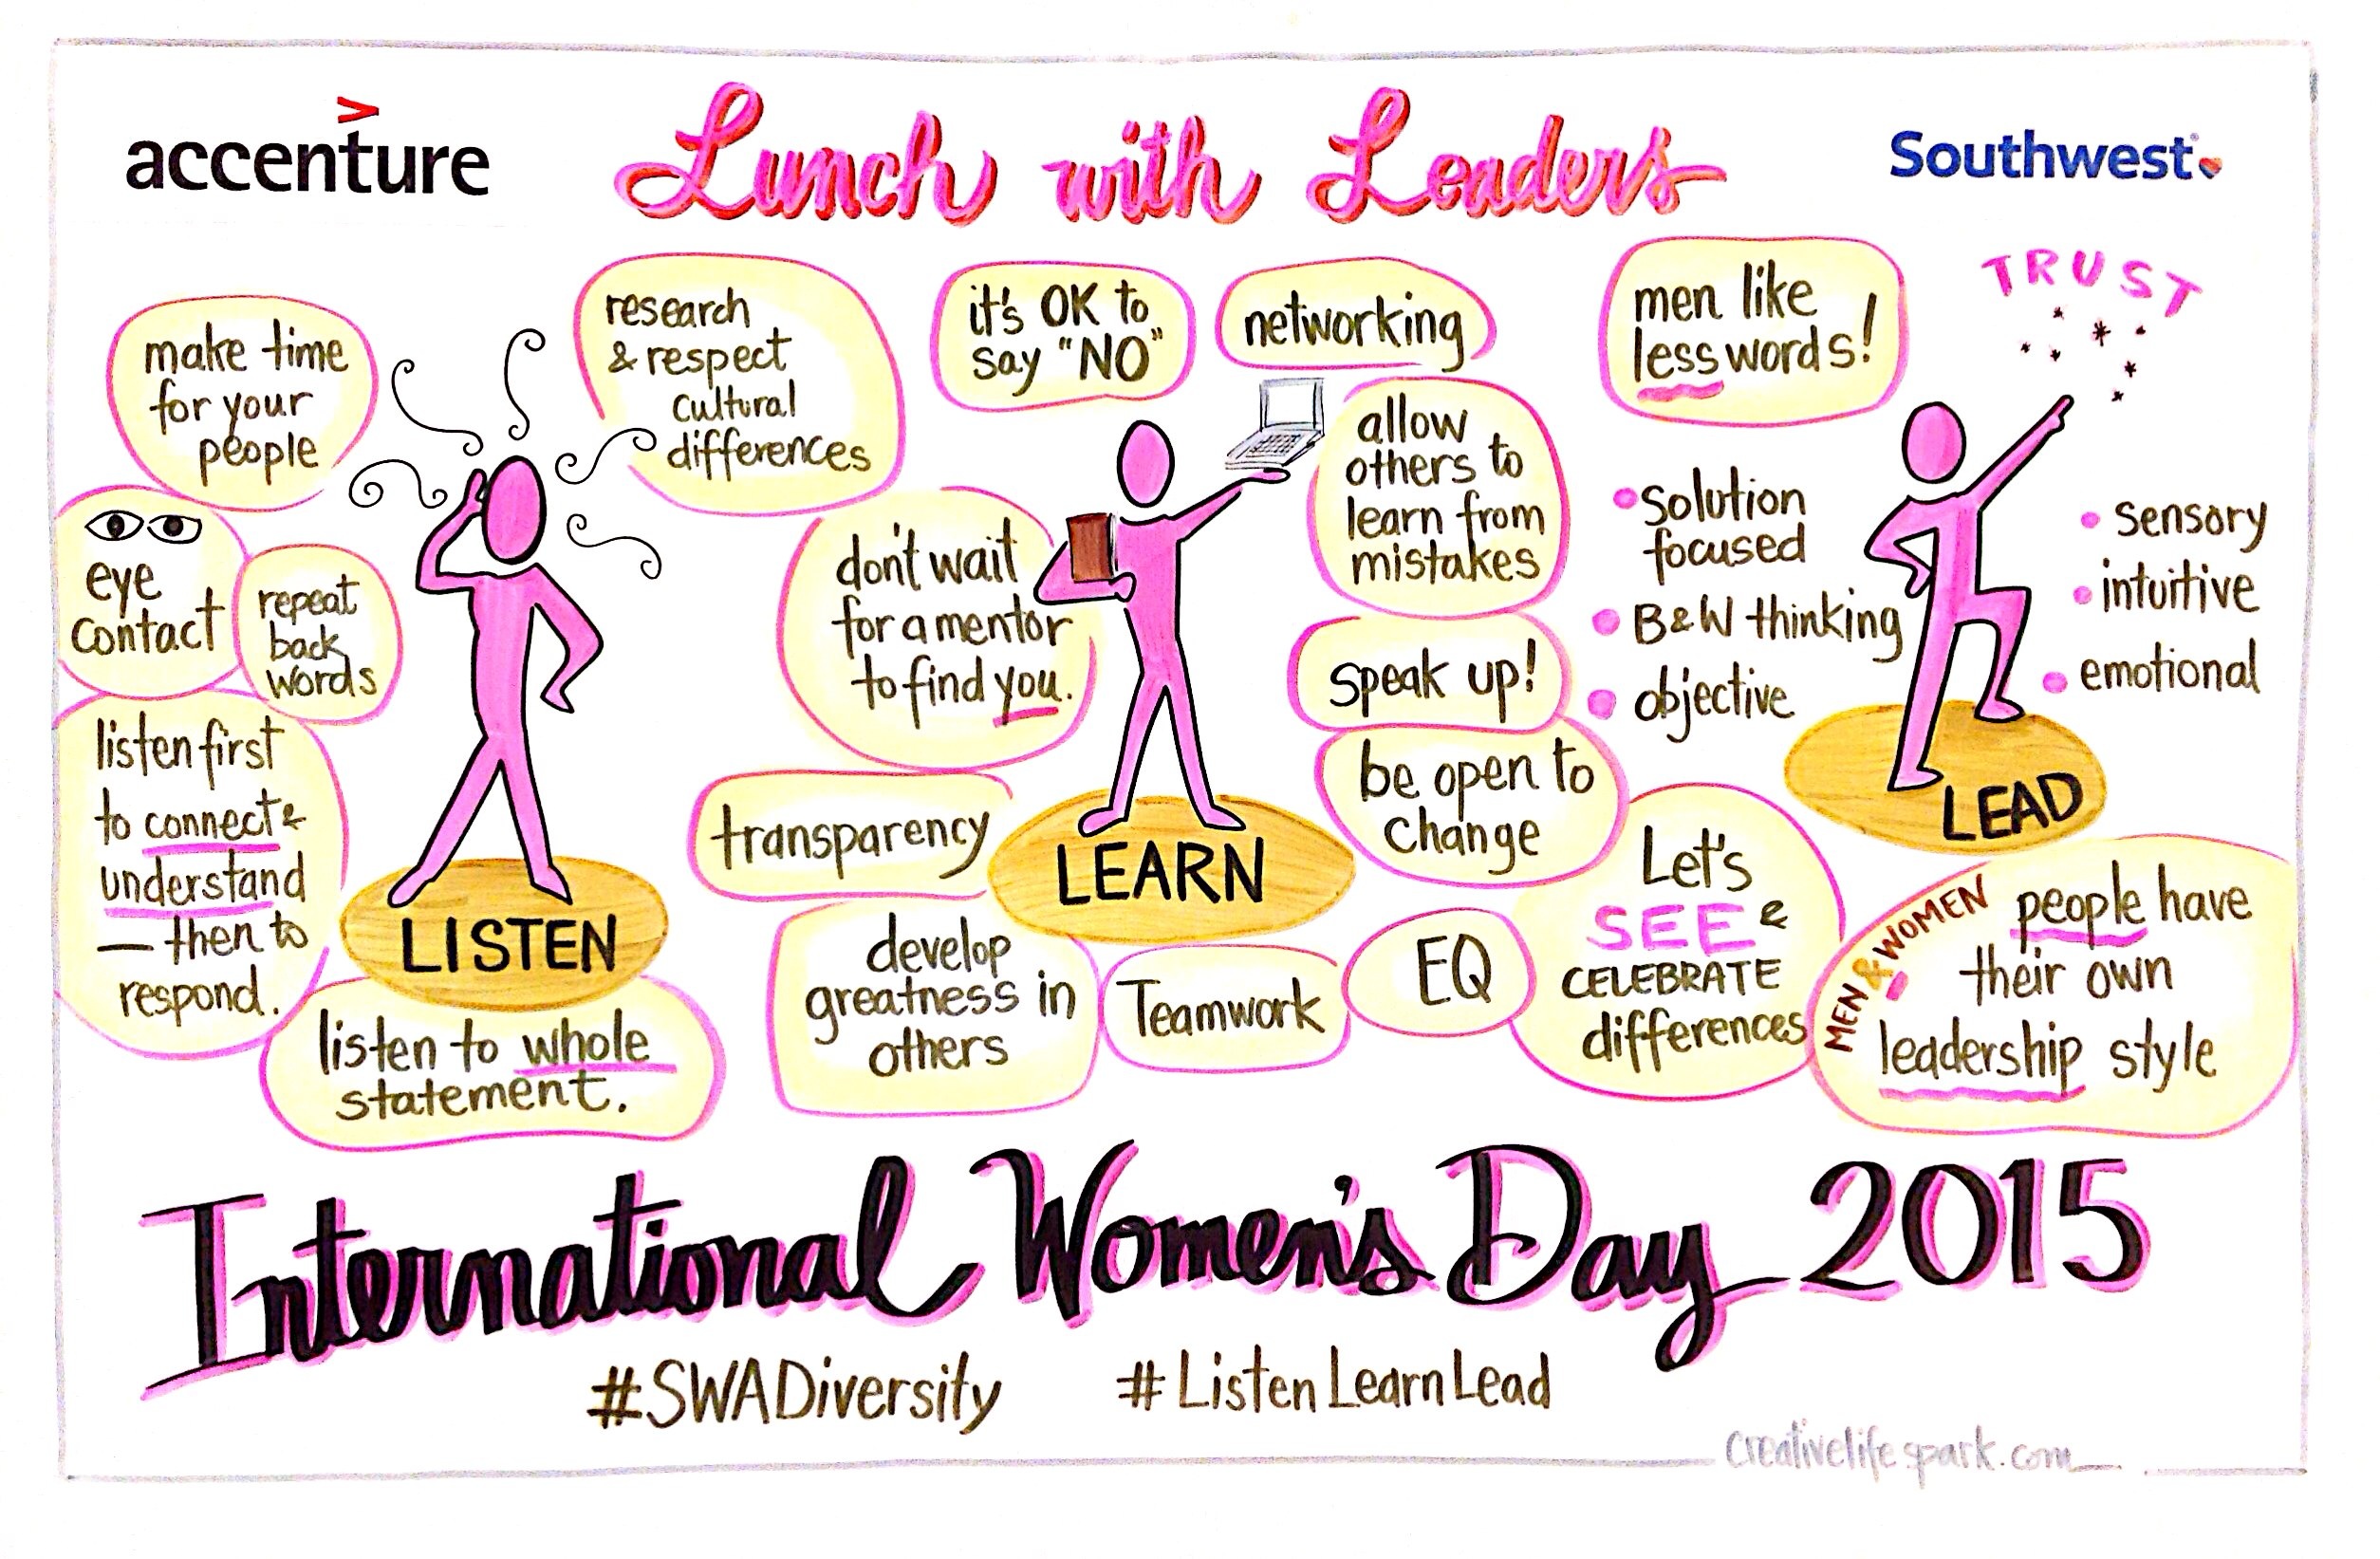 accenture
>
Lunch with Leaders
Southwest
make time
for your
people
eye
contact
repeat
back
words
listen first
to connect &
understand
— then to
respond.
LISTEN
listen to whole
statement.
research
& respect
cultural
differences
it's OK to
say "NO"
networking
don't wait
for a mentor
to find you.
allow
others to
learn from
mistakes
speak up!
be open to
change
transparency
LEARN
develop
greatness in
others
Teamwork
EQ
men like
less words!
TRUST
• solution
focused
• B&W thinking
• objective
• sensory
• intuitive
• emotional
LEAD
Let's
SEE &
CELEBRATE
differences
MEN & WOMEN
people have
their own
leadership style
International Women's Day 2015
#SWADiversity
#ListenLearnLead
Creativelifespark.com